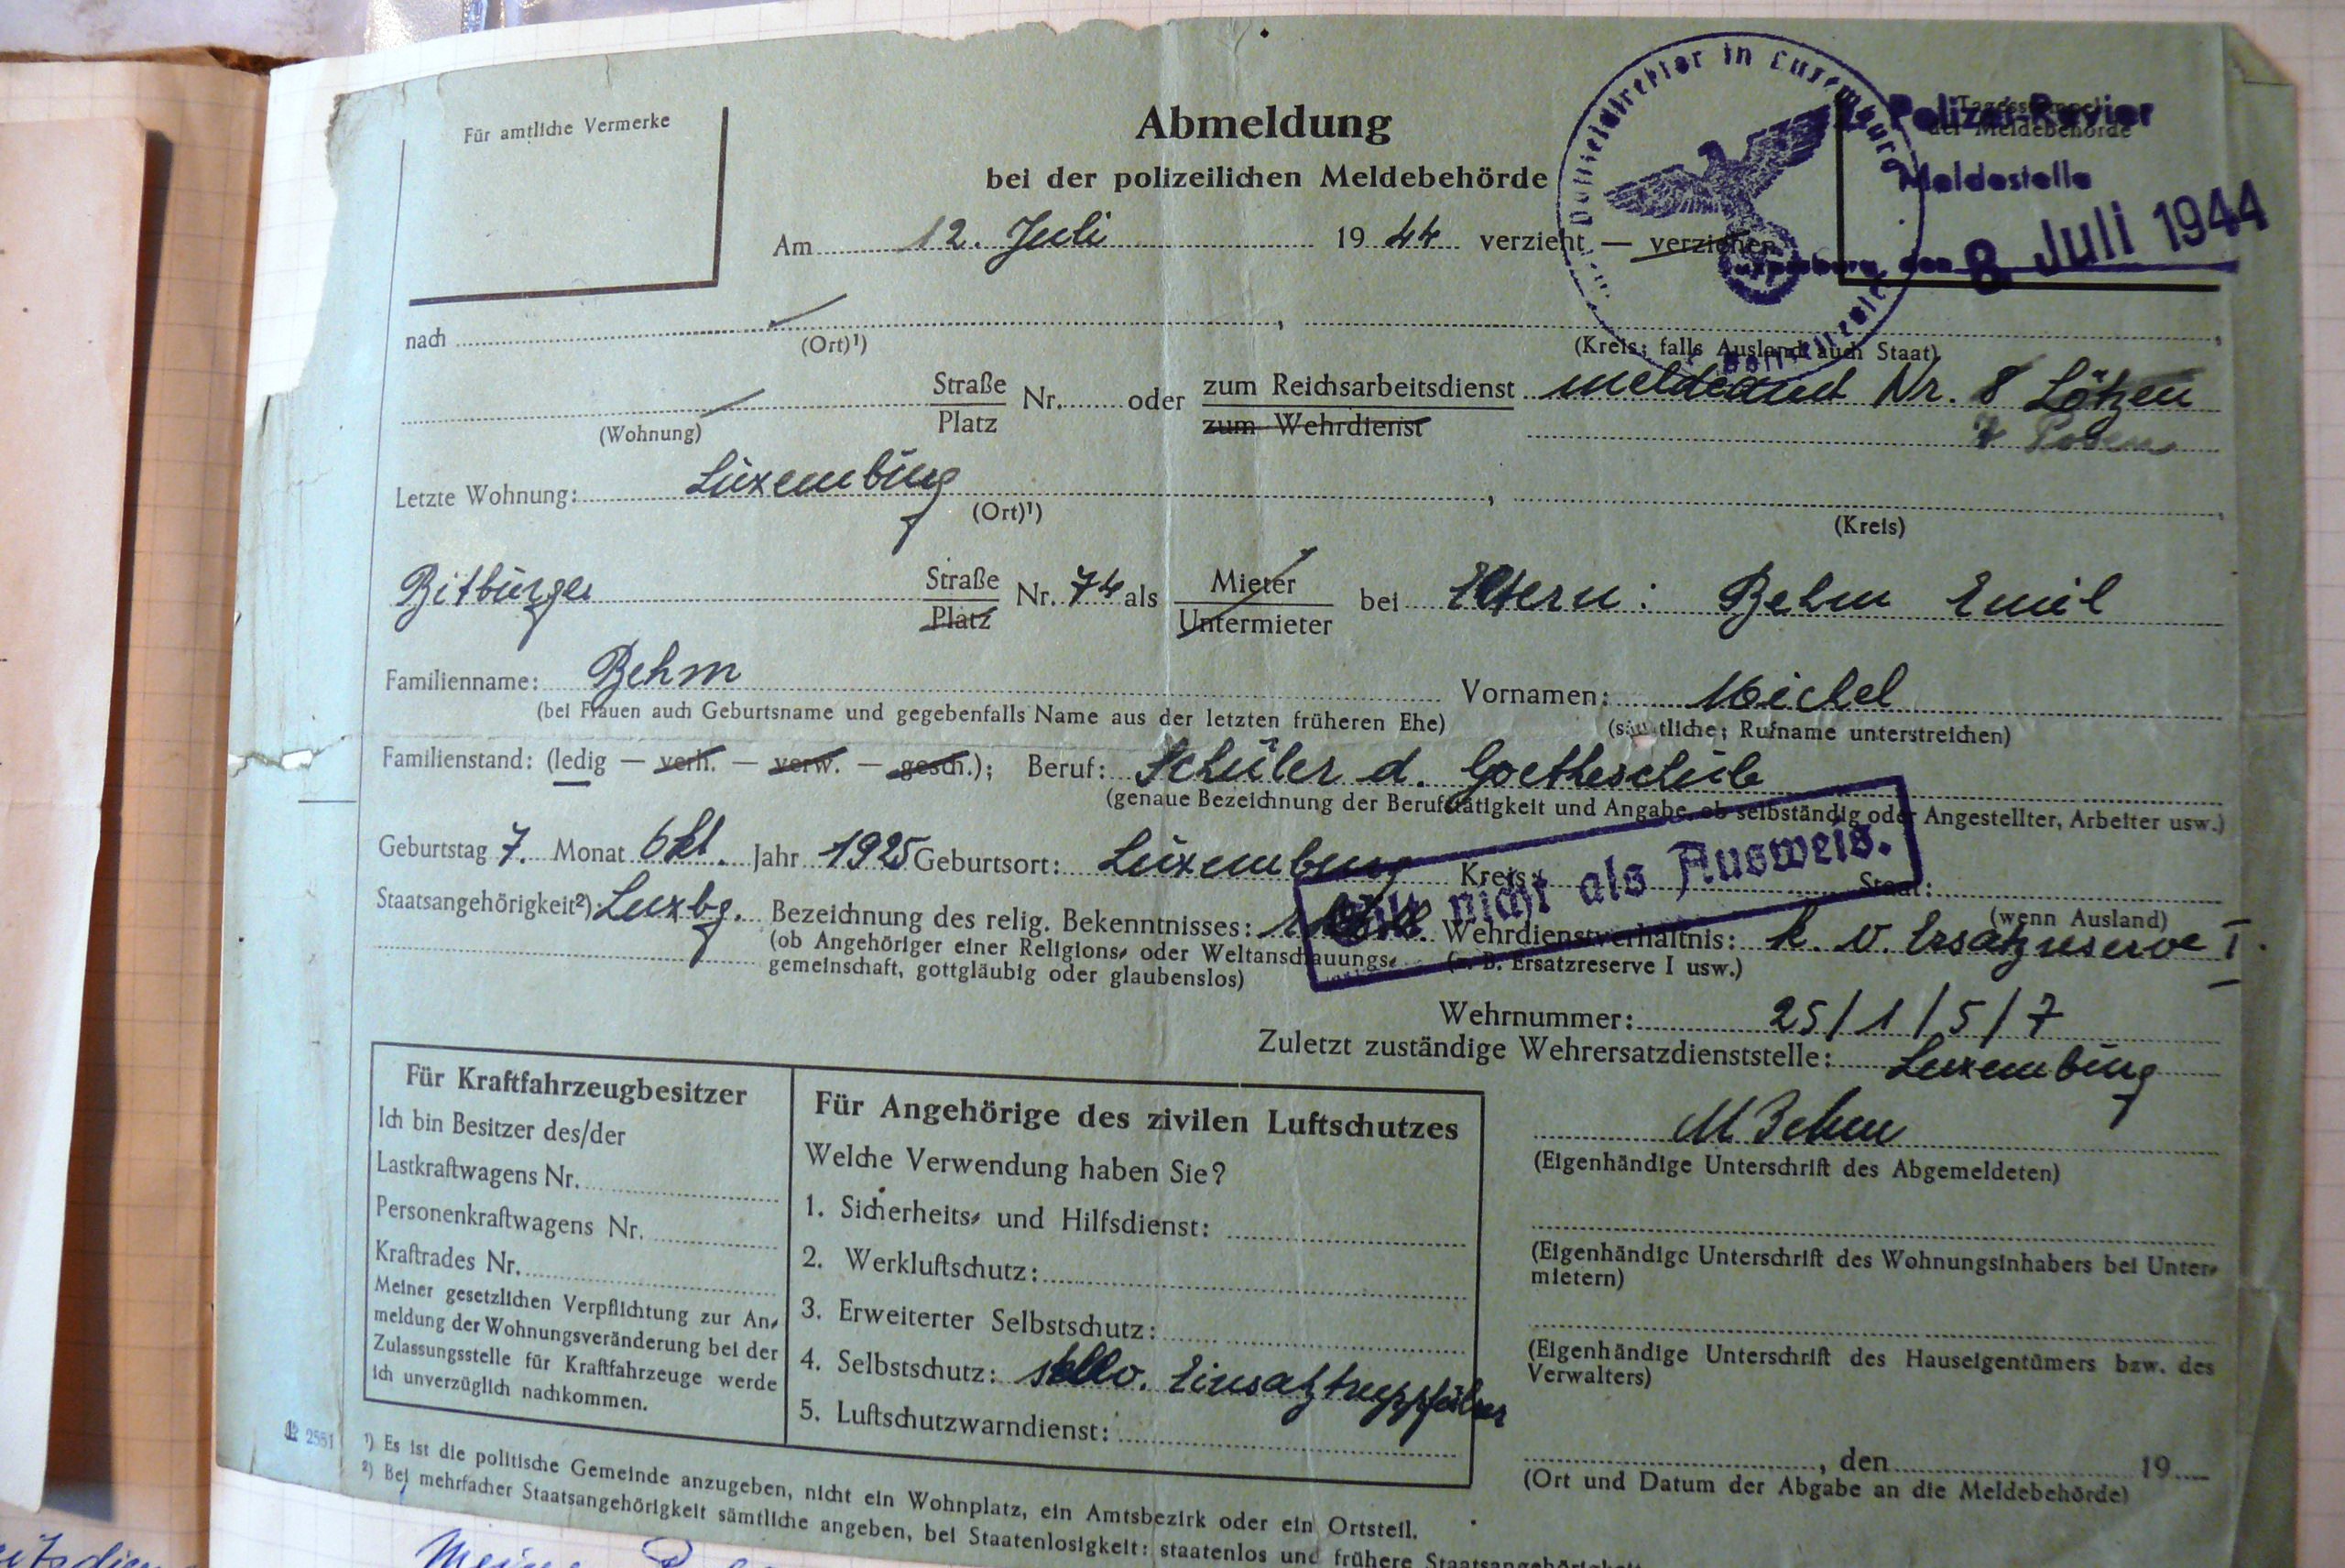 Für amtliche Vermerke
Abmeldung
bei der polizeilichen Meldebehörde
Der Polizeidirektor in Luxemburg
Polizei-Revier
Tagesstempel
der Meldebehörde
Meldestelle
den 8. Juli 1944
Am 12. Juli 19 44 verzieht — verziehen
nach
(Ort)¹) (Kreis; falls Ausland auch Staat)
Straße
Platz
Nr. oder
zum Reichsarbeitsdienst
zum Wehrdienst
meldeamt Nr. 8 Lötzen
7 Posen
(Wohnung)
Letzte Wohnung: Luxemburg
(Ort)¹) (Kreis)
Bitburger Straße
Platz
Nr. 74 als
Mieter
Untermieter
bei Eltern: Behm Emil
Familienname: Behm Vornamen: Michel
(bei Frauen auch Geburtsname und gegebenfalls Name aus der letzten früheren Ehe) (sämtliche; Rufname unterstreichen)
Familienstand: (ledig — verh. — verw. — gesch.); Beruf: Schüler d. Goetheschule
(genaue Bezeichnung der Berufstätigkeit und Angabe, ob selbständig oder Angestellter, Arbeiter usw.)
Geburtstag 7. Monat Okt. Jahr 1925 Geburtsort: Luxemburg Kreis: Staat:
(wenn Ausland)
Gilt nicht als Ausweis.
Staatsangehörigkeit²): Luxbg. Bezeichnung des relig. Bekenntnisses: Wehrdienstverhältnis: k. v. Ersatzreserve I.
(ob Angehöriger einer Religions- oder Weltanschauungs- (z. B. Ersatzreserve I usw.)
gemeinschaft, gottgläubig oder glaubenslos)
Wehrnummer: 25/1/5/7
Zuletzt zuständige Wehrersatzdienststelle: Luxemburg
Für Kraftfahrzeugbesitzer
Ich bin Besitzer des/der
Lastkraftwagens Nr.
Personenkraftwagens Nr.
Kraftrades Nr.
Meiner gesetzlichen Verpflichtung zur An-
meldung der Wohnungsveränderung bei der
Zulassungsstelle für Kraftfahrzeuge werde
ich unverzüglich nachkommen.
Für Angehörige des zivilen Luftschutzes
Welche Verwendung haben Sie?
1. Sicherheits- und Hilfsdienst:
2. Werkluftschutz:
3. Erweiterter Selbstschutz:
4. Selbstschutz: stellv. Einsatztruppführer
5. Luftschutzwarndienst:
M Behm
(Eigenhändige Unterschrift des Abgemeldeten)
(Eigenhändige Unterschrift des Wohnungsinhabers bei Unter-
mietern)
(Eigenhändige Unterschrift des Hauseigentümers bzw. des
Verwalters)
, den 19
(Ort und Datum der Abgabe an die Meldebehörde)
¹) Es ist die politische Gemeinde anzugeben, nicht ein Wohnplatz, ein Amtsbezirk oder ein Ortsteil.
²) Bei mehrfacher Staatsangehörigkeit sämtliche angeben, bei Staatenlosigkeit: staatenlos und frühere Staatsangehörigkeit